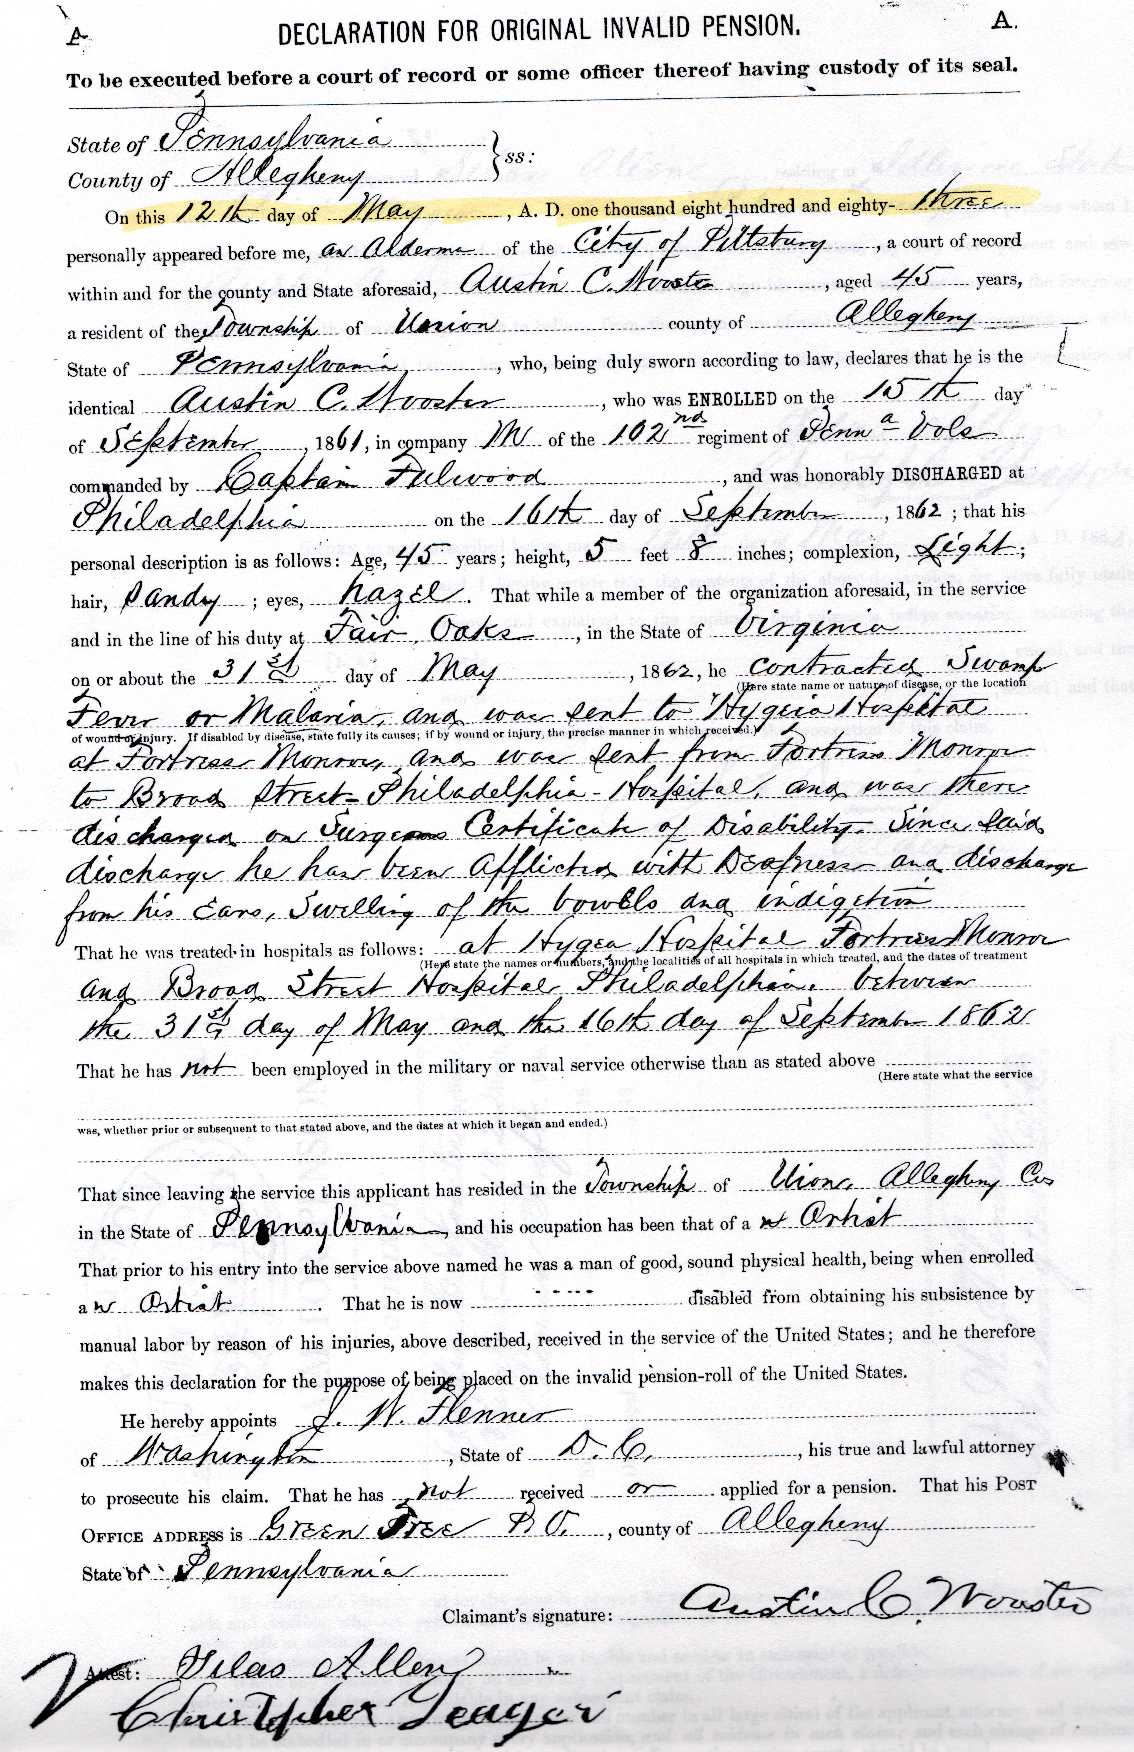 A DECLARATION FOR ORIGINAL INVALID PENSION. A.
To be executed before a court of record or some officer thereof having custody of its seal.
State of Pennsylvania
County of Allegheny } ss:
On this 12th day of May, A. D. one thousand eight hundred and eighty- three
personally appeared before me, an Alderma of the City of Pittsburg, a court of record
within and for the county and State aforesaid, Austin C. Wooster, aged 45 years,
a resident of the Township of Union county of Allegheny
State of Pennsylvania, who, being duly sworn according to law, declares that he is the
identical Austin C. Wooster, who was ENROLLED on the 15th day
of September, 1861, in company M of the 102nd regiment of Penna Vols
commanded by Captain Fulwood, and was honorably DISCHARGED at
Philadelphia on the 16th day of September, 1862; that his
personal description is as follows: Age, 45 years; height, 5 feet 8 inches; complexion, Light;
hair, Sandy; eyes, hazel. That while a member of the organization aforesaid, in the service
and in the line of his duty at Fair Oaks, in the State of Virginia
on or about the 31st day of May, 1862, he contracted Swamp
(Here state name or nature of disease, or the location
Fever or Malaria, and was sent to Hygeia Hospital
of wound or injury. If disabled by disease, state fully its causes; if by wound or injury, the precise manner in which received.)
at Fortress Monroe, and was sent from Fortress Monroe
to Broad Street - Philadelphia - Hospital, and was there
discharged on Surgeons Certificate of Disability. Since said
discharge he has been afflicted with Deafness and discharge
from his Ears, Swelling of the bowels and indigetion
That he was treated in hospitals as follows: at Hygea Hospital Fortress Monroe
(Here state the names or numbers, and the localities of all hospitals in which treated, and the dates of treatment
and Broad Street Hospital Philadelphia. between
the 31st day of May and the 16th day of September 1862
That he has not been employed in the military or naval service otherwise than as stated above
(Here state what the service
was, whether prior or subsequent to that stated above, and the dates at which it began and ended.)
That since leaving the service this applicant has resided in the Township of Union, Allegheny Co
in the State of Pennsylvania, and his occupation has been that of a n Artist
That prior to his entry into the service above named he was a man of good, sound physical health, being when enrolled
a n Artist. That he is now - - - - disabled from obtaining his subsistence by
manual labor by reason of his injuries, above described, received in the service of the United States; and he therefore
makes this declaration for the purpose of being placed on the invalid pension-roll of the United States.
He hereby appoints J. W. Flenner
of Washington, State of D. C., his true and lawful attorney
to prosecute his claim. That he has not received or applied for a pension. That his POST
OFFICE ADDRESS is Green Tree P.O., county of Allegheny
State of Pennsylvania
Claimant's signature: Austin C. Wooster
Attest: Silas Allen
Christopher Yeager